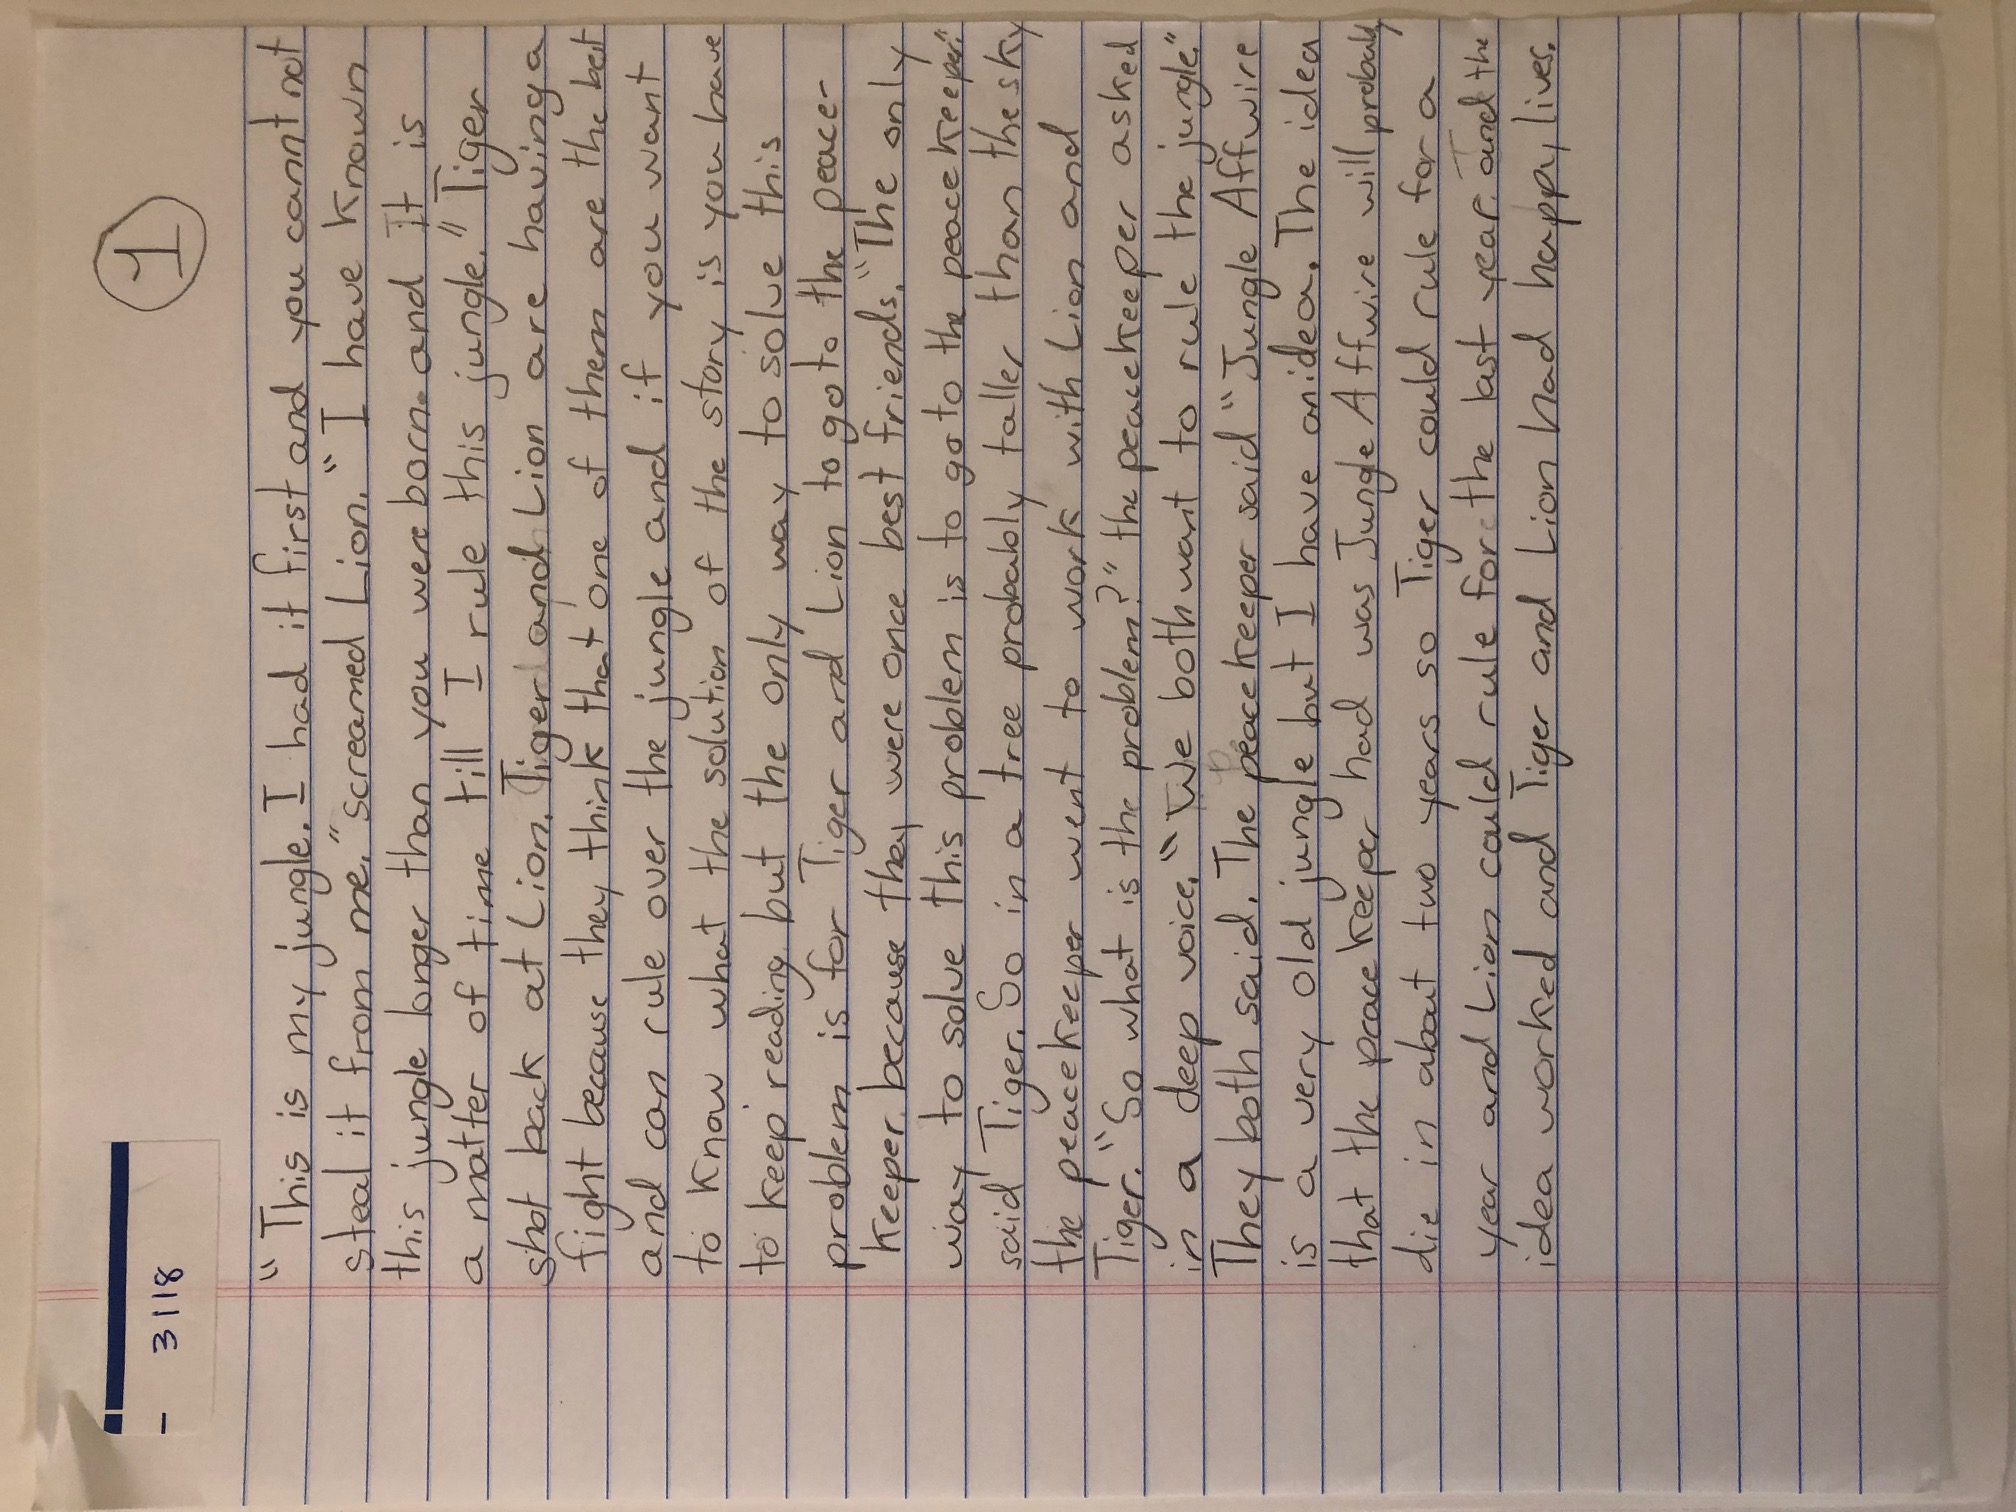 - 3118
1
"This is my jungle. I had it first and you cannt not
steal it from me." screamed Lion. "I have known
this jungle longer than you were born. and It is
a matter of time till I rule this jungle." Tiger
shot back at Lion. Tiger and Lion are having a
fight because they think that one of them are the best
and can rule over the jungle and if you want
to know what the solution of the story is you have
to keep reading but the only way to solve this
problem is for Tiger and Lion to go to the peace-
keeper because they were once best friends. "The only
way to solve this problem is to go to the peace keeper."
said Tiger. So in a tree probably taller than the sky
the peacekeeper went to work with Lion and
Tiger. "So what is the problem?" the peacekeeper asked
in a deep voice. "We both want to rule the jungle."
They both said. The peacekeeper said "Jungle Affwire
is a very old jungle but I have an idea. The idea
that the peace keeper had was Jungle Affwire will probably
die in about two years so Tiger could rule for a
year and Lion could rule for the last year. and the
idea worked and Tiger and Lion had happy lives.